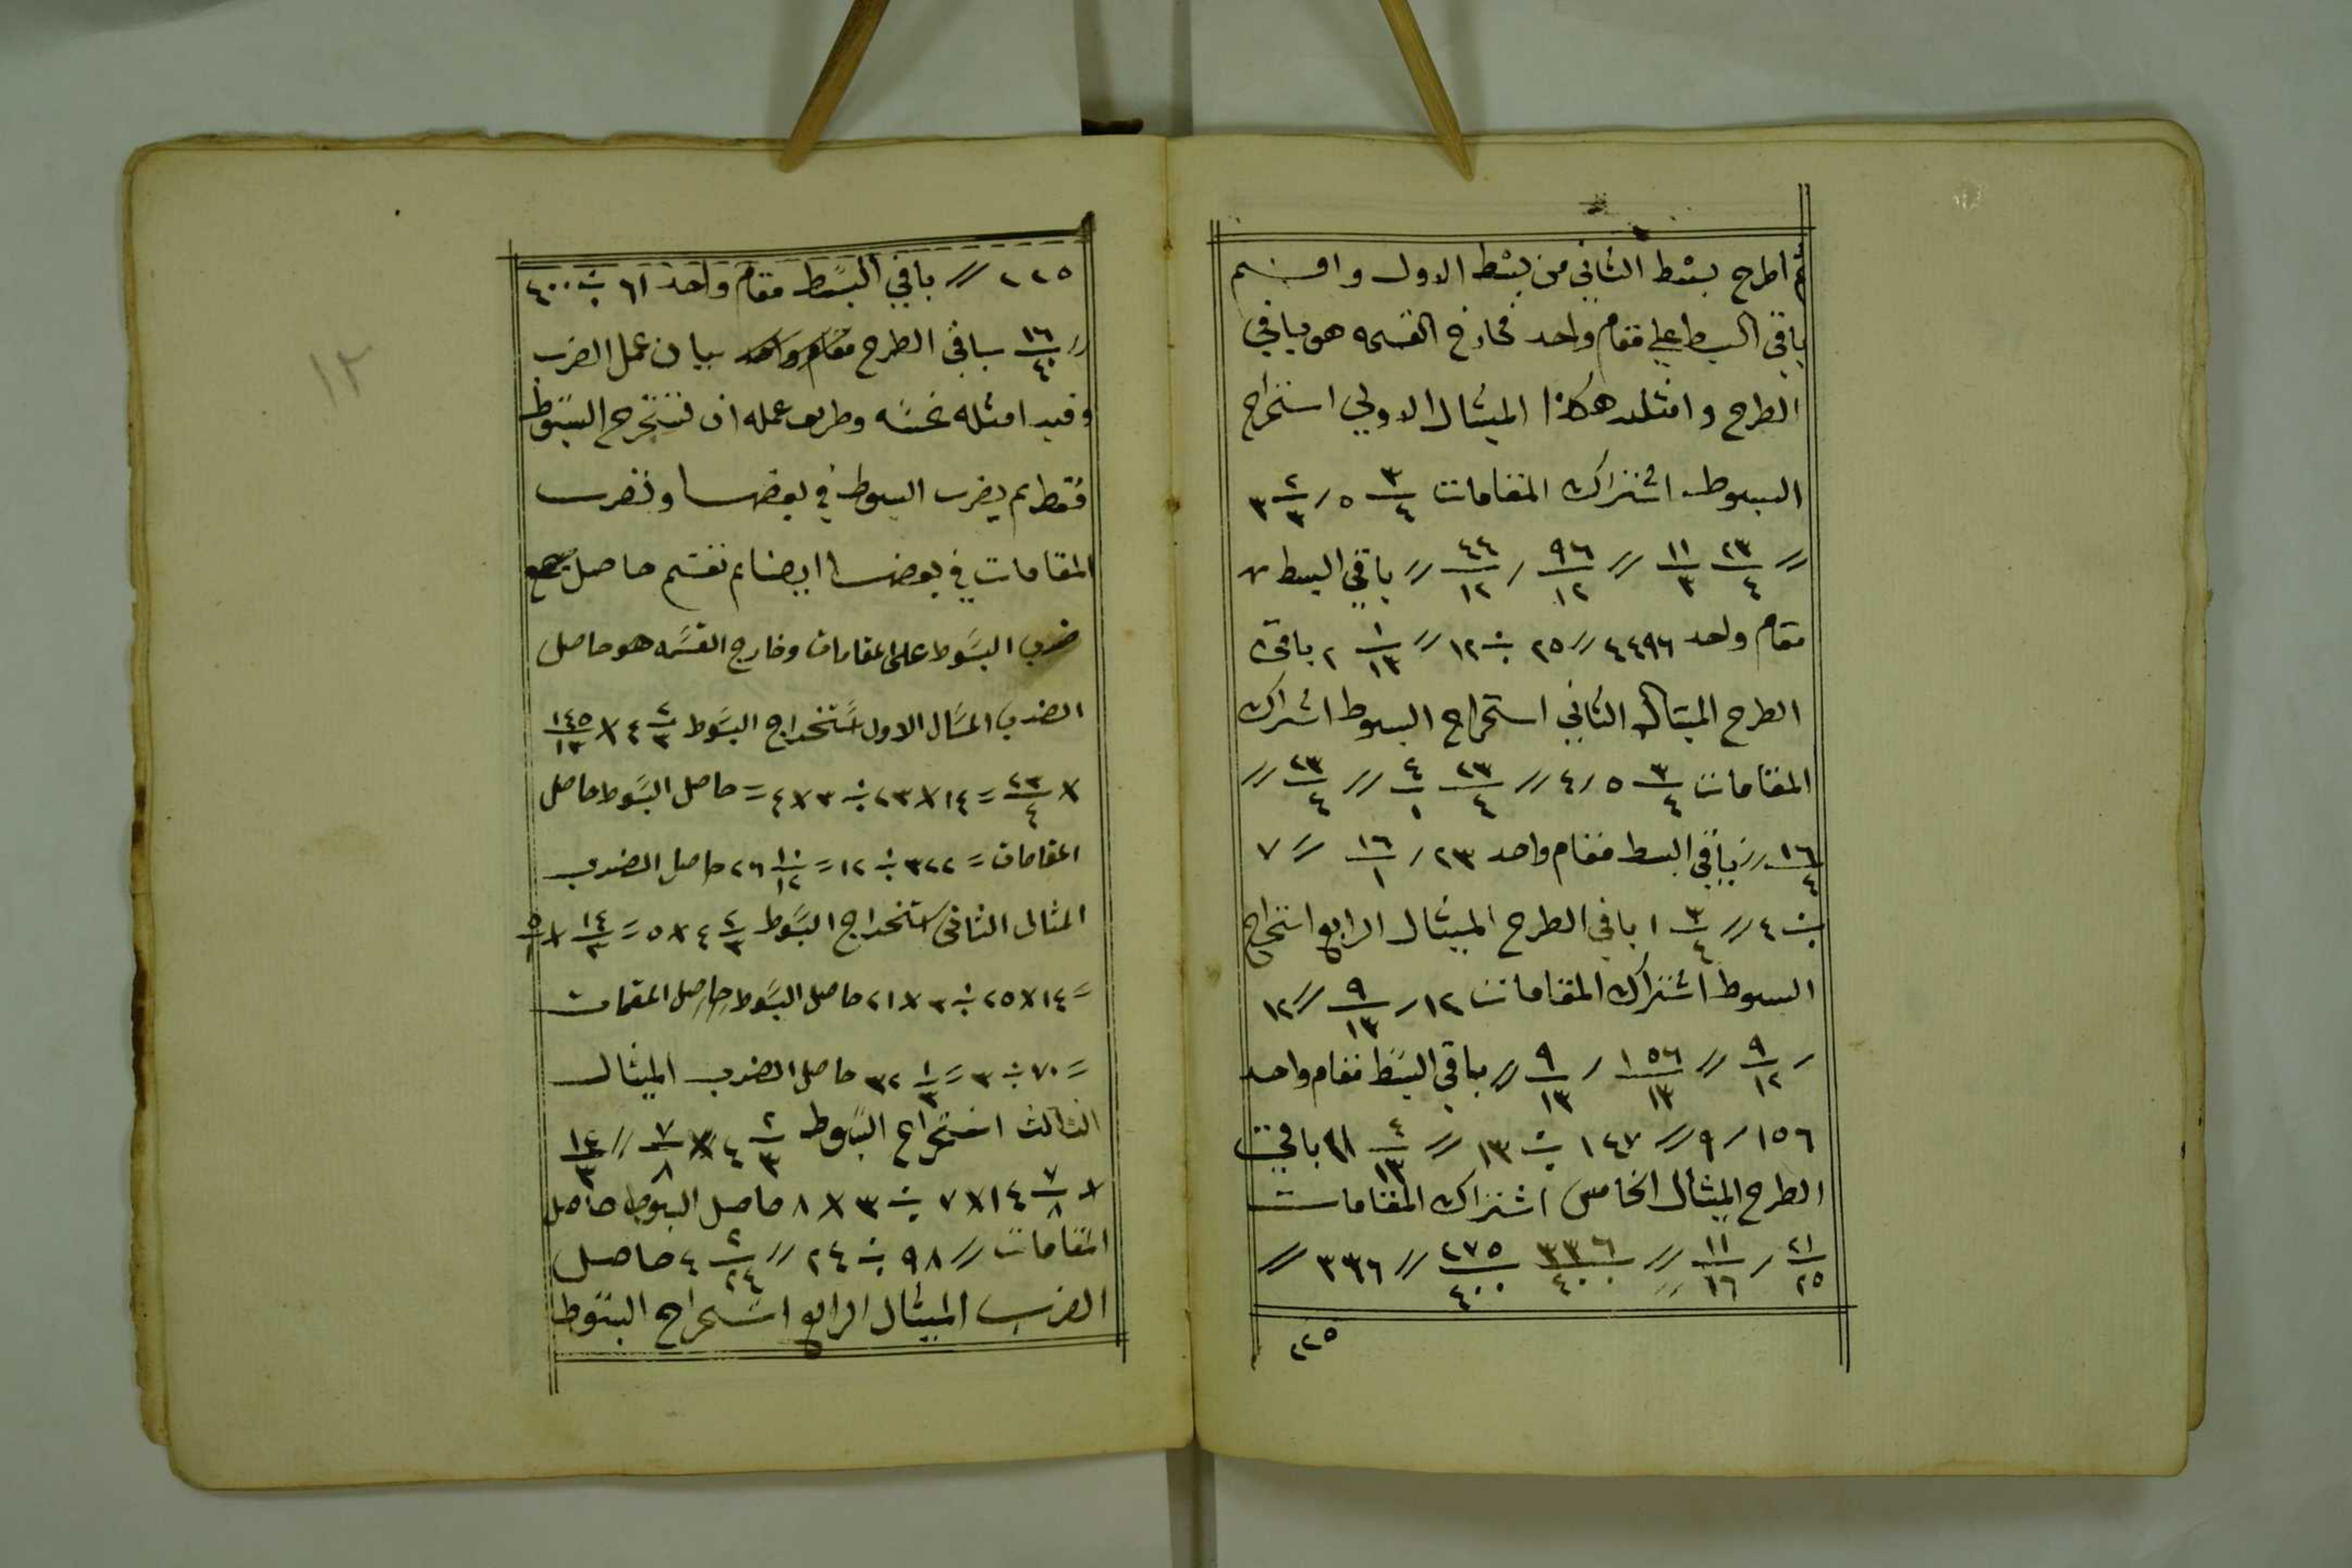 ثم اطرح بسط الثاني من بسط الاول واقسم
باقي البسط علي مقام واحد فخارج القسمه هو باقي
الطرح وامثلته هكذا الميثال الاولي استخراج
البسوط اشتراك المقامات ٣/٤ ٥ ر ٢/٣ ٣
// ٢٣/٤ ١١/٣ // ٩٦/١٢ ر ٤٤/١٢ // باقي البسط
مقام واحد ٤٤٩٦ // ٢٥ ÷ ١٢ // ١/١٣ ٢ باقي
الطرح الميثال الثاني استخراج البسوط اشتراك
المقامات ٣/٤ ٥ ر ٤ // ٢٣/٤ ٤/١ // ٢٣/٤ //
١٦/٤ // باقي البسط مقام واحد ٢٣ ر ١٦/١ // ٧
÷ ٤ // ٣/٤ ١ باقي الطرح الميثال الرابع استخراج
البسوط اشتراك المقامات ١٢ ر ٩/١٣ // ١٢
ر ٩/١٢ // ١٥٦/١٣ ر ٩/١٣ // باقي البسط مقام واحد
١٥٦ ر ٩ // ١٤٧ ÷ ١٣ // ٤/١٣ ١١ باقي
الطرح الميثال الخامس اشتراك المقامات
٢١/٢٥ ر ١١/١٦ // ٣٣٦/٤٠٠ ٢٧٥/٤٠٠ // ٣٣٦ //
٢٢٥
٢٢٥ // باقي البسط مقام واحد ٦١ ÷ ٤٠٠
// ١٦/٤٠ باقي الطرح مقام واحد بيان عمل الضرب
وفيه امثله خمسه وطريق عمله ان تستخرج البسوط
فقط ثم يضرب البسوط في بعضها ونضرب
المقامات في بعضها ايضا ثم نقسم حاصل
ضرب البسوط على المقامات وخارج القسمه هو حاصل
الضرب المثال الاول استخراج البسوط ٢/٣ ٤ × ١٤٥/١٢
× ٢٣/٤ = ١٤ × ٢٣ ÷ ٣ × ٤ = حاصل البسوط حاصل
المقامات = ٣٢٢ ÷ ١٢ = ١٠/١٢ ٢٦ حاصل الضرب
المثال الثاني استخراج البسوط ٢/٣ ٤ × ٥ = ١٤/٣ × ٥/١
= ١٤ × ٢٥ ÷ ٣ × ٢١ حاصل البسوط حاصل المقمات
= ٧٠ ÷ ٣ = ١/٣ ٣٢ حاصل الضرب الميثال
الثالث استخراج البسوط ٢/٣ ٤ × ٧/٨ // ١٤/٣
× ٧/٨ ١٤ × ٧ ÷ ٣ × ٨ حاصل البسوط حاصل
المقامات // ٩٨ ÷ ٢٤ // ٢/٢٤ ٤ حاصل
الضرب الميثال الرابع استخراج البسوط
١٢